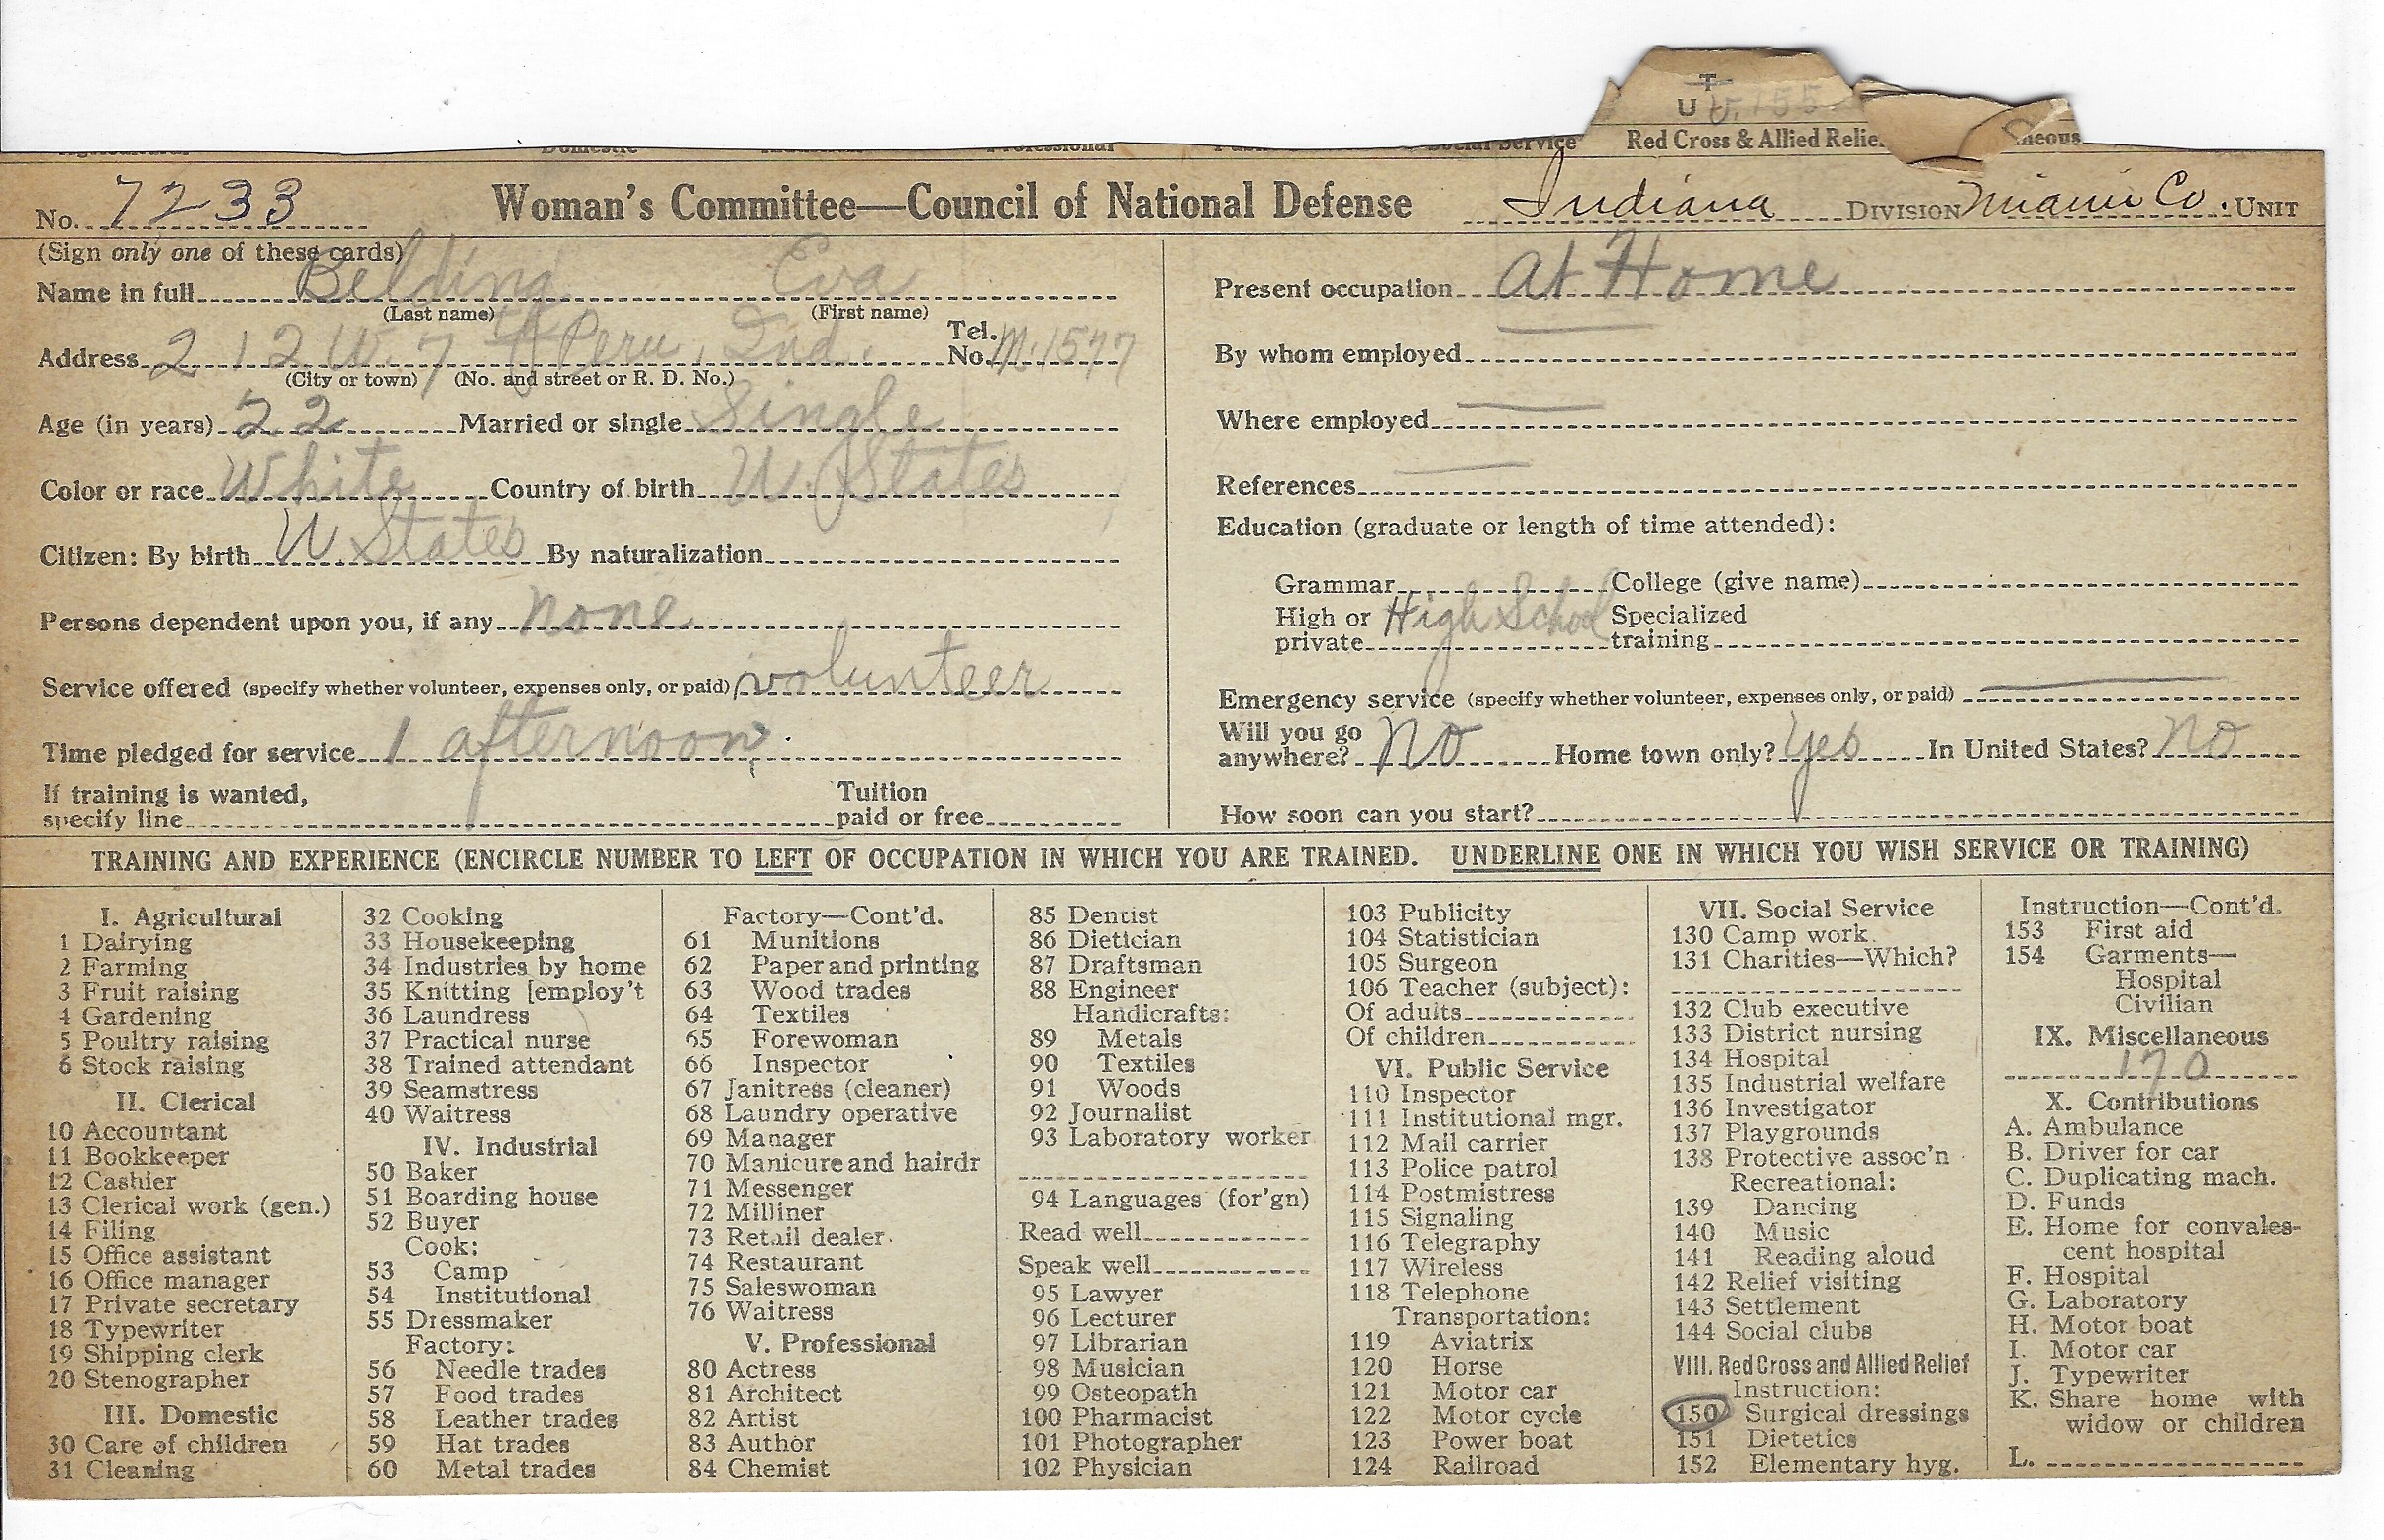 T
U U. 155
Domestic Social Service Red Cross & Allied Relie neous
No. 7233 Woman's Committee—Council of National Defense Indiana DIVISION Miami Co. UNIT
(Sign only one of these cards)
Name in full Belding Eva
(Last name) (First name)
Address 212 W. 7th Peru, Ind. Tel. No. M. 1577
(City or town) (No. and street or R. D. No.)
Age (in years) 22 Married or single Single
Color or race White Country of birth U. States
Citizen: By birth U States By naturalization
Persons dependent upon you, if any none
Service offered (specify whether volunteer, expenses only, or paid) volunteer
Time pledged for service 1 afternoon
If training is wanted, specify line Tuition paid or free
Present occupation at Home
By whom employed
Where employed
References
Education (graduate or length of time attended):
Grammar College (give name)
High or private High School Specialized training
Emergency service (specify whether volunteer, expenses only, or paid)
Will you go anywhere? No Home town only? Yes In United States? No
How soon can you start?
TRAINING AND EXPERIENCE (ENCIRCLE NUMBER TO LEFT OF OCCUPATION IN WHICH YOU ARE TRAINED. UNDERLINE ONE IN WHICH YOU WISH SERVICE OR TRAINING)
I. Agricultural
1 Dairying
2 Farming
3 Fruit raising
4 Gardening
5 Poultry raising
6 Stock raising
II. Clerical
10 Accountant
11 Bookkeeper
12 Cashier
13 Clerical work (gen.)
14 Filing
15 Office assistant
16 Office manager
17 Private secretary
18 Typewriter
19 Shipping clerk
20 Stenographer
III. Domestic
30 Care of children
31 Cleaning
32 Cooking
33 Housekeeping
34 Industries by home
35 Knitting [employ't
36 Laundress
37 Practical nurse
38 Trained attendant
39 Seamstress
40 Waitress
IV. Industrial
50 Baker
51 Boarding house
52 Buyer
Cook:
53 Camp
54 Institutional
55 Dressmaker
Factory:
56 Needle trades
57 Food trades
58 Leather trades
59 Hat trades
60 Metal trades
Factory—Cont'd.
61 Munitions
62 Paper and printing
63 Wood trades
64 Textiles
65 Forewoman
66 Inspector
67 Janitress (cleaner)
68 Laundry operative
69 Manager
70 Manicure and hairdr
71 Messenger
72 Milliner
73 Retail dealer
74 Restaurant
75 Saleswoman
76 Waitress
V. Professional
80 Actress
81 Architect
82 Artist
83 Author
84 Chemist
85 Dentist
86 Dietician
87 Draftsman
88 Engineer
Handicrafts:
89 Metals
90 Textiles
91 Woods
92 Journalist
93 Laboratory worker
94 Languages (for'gn)
Read well
Speak well
95 Lawyer
96 Lecturer
97 Librarian
98 Musician
99 Osteopath
100 Pharmacist
101 Photographer
102 Physician
103 Publicity
104 Statistician
105 Surgeon
106 Teacher (subject):
Of adults
Of children
VI. Public Service
110 Inspector
111 Institutional mgr.
112 Mail carrier
113 Police patrol
114 Postmistress
115 Signaling
116 Telegraphy
117 Wireless
118 Telephone
Transportation:
119 Aviatrix
120 Horse
121 Motor car
122 Motor cycle
123 Power boat
124 Railroad
VII. Social Service
130 Camp work
131 Charities—Which?
132 Club executive
133 District nursing
134 Hospital
135 Industrial welfare
136 Investigator
137 Playgrounds
138 Protective assoc'n
Recreational:
139 Dancing
140 Music
141 Reading aloud
142 Relief visiting
143 Settlement
144 Social clubs
VIII. Red Cross and Allied Relief
Instruction:
150 Surgical dressings
151 Dietetics
152 Elementary hyg.
Instruction—Cont'd.
153 First aid
154 Garments—
Hospital
Civilian
IX. Miscellaneous
170
X. Contributions
A. Ambulance
B. Driver for car
C. Duplicating mach.
D. Funds
E. Home for convales-
cent hospital
F. Hospital
G. Laboratory
H. Motor boat
I. Motor car
J. Typewriter
K. Share home with
widow or children
L.